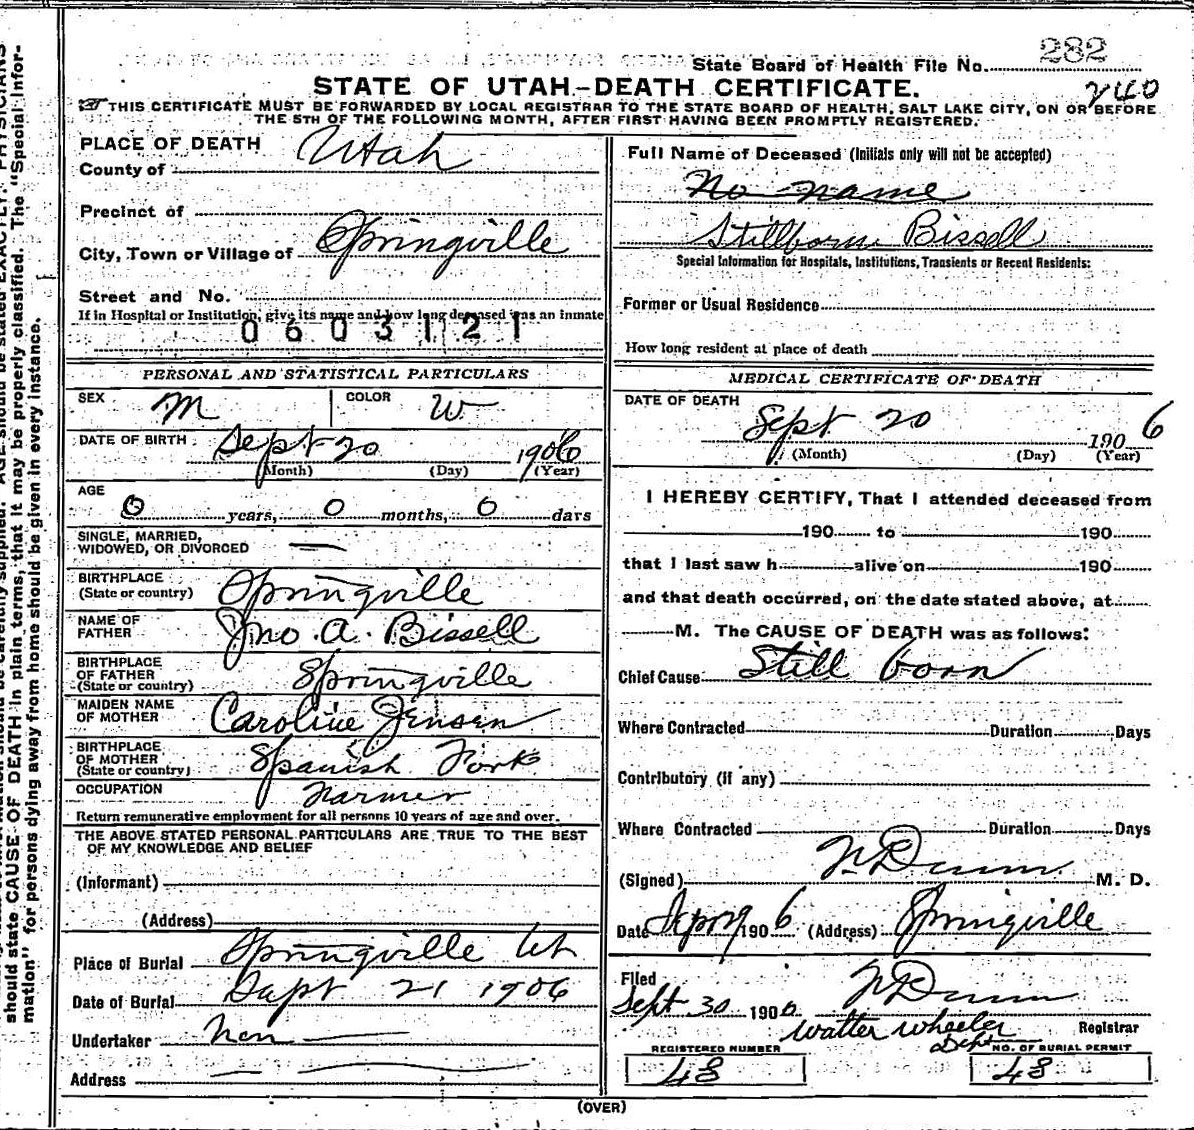 State Board of Health File No. 282
STATE OF UTAH-DEATH CERTIFICATE. 240
THIS CERTIFICATE MUST BE FORWARDED BY LOCAL REGISTRAR TO THE STATE BOARD OF HEALTH, SALT LAKE CITY, ON OR BEFORE
THE 5TH OF THE FOLLOWING MONTH, AFTER FIRST HAVING BEEN PROMPTLY REGISTERED.
PLACE OF DEATH
County of Utah
Precinct of
City, Town or Village of Springville
Street and No.
If in Hospital or Institution, give its name and how long deceased was an inmate
0603121
PERSONAL AND STATISTICAL PARTICULARS
SEX M COLOR W
DATE OF BIRTH Sept 20 1906
(Month) (Day) (Year)
AGE
0 years, 0 months, 0 days
SINGLE, MARRIED,
WIDOWED, OR DIVORCED —
BIRTHPLACE
(State or country) Springville
NAME OF
FATHER Jno. A. Bissell
BIRTHPLACE
OF FATHER
(State or country) Springville
MAIDEN NAME
OF MOTHER Caroline Jensen
BIRTHPLACE
OF MOTHER
(State or country) Spanish Fork
OCCUPATION Farmer
Return remunerative employment for all persons 10 years of age and over.
THE ABOVE STATED PERSONAL PARTICULARS ARE TRUE TO THE BEST
OF MY KNOWLEDGE AND BELIEF
(Informant)
(Address)
Place of Burial Springville Ut
Date of Burial Sept 21 1906
Undertaker Non
Address
Full Name of Deceased (Initials only will not be accepted)
No name
Stillborn Bissell
Special Information for Hospitals, Institutions, Transients or Recent Residents:
Former or Usual Residence
How long resident at place of death
MEDICAL CERTIFICATE OF DEATH
DATE OF DEATH
Sept 20 1906
(Month) (Day) (Year)
I HEREBY CERTIFY, That I attended deceased from
190 to 190
that I last saw h alive on 190
and that death occurred, on the date stated above, at
M. The CAUSE OF DEATH was as follows:
Chief Cause Still born
Where Contracted Duration Days
Contributory (if any)
Where Contracted Duration Days
(Signed) Dunn M. D.
Date 1906 (Address) Springville
Filed
Sept 30 1906 Dunn
Walter Wheeler Registrar
Dept
REGISTERED NUMBER NO. OF BURIAL PERMIT
48 48
(OVER)
should state CAUSE OF DEATH in plain terms, that it may be properly classified. The "Special Infor-
mation" for persons dying away from home should be given in every instance.